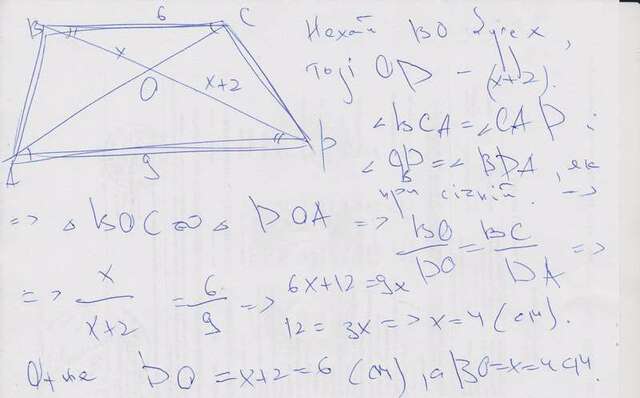 B 6 C
x
O x+2
A 9 D
Нехай BO буде x,
тоді OD – (x+2).
∠BCA = ∠CAD і
∠CBD = ∠BDA, як
при січній. =>
=> △BOC ∾ △DOA => BO/DO = BC/DA =>
=> x/x+2 = 6/9 => 6x+12=9x
12 = 3x => x=4 (см).
Отже DO = x+2 = 6 (см), а BO=x=4 см.